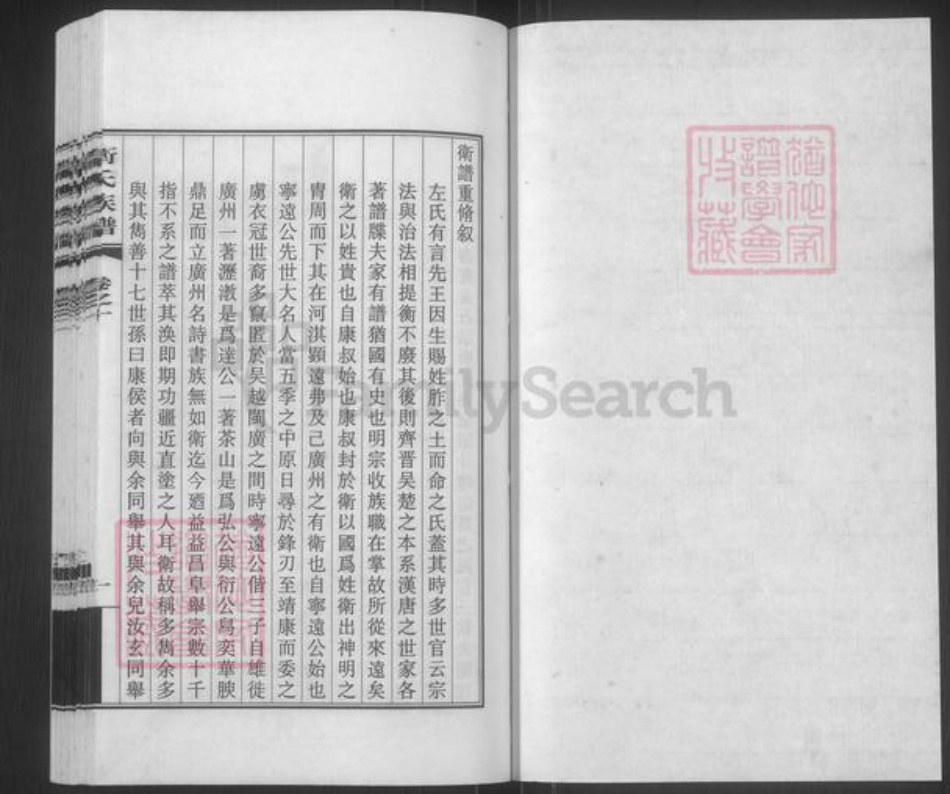 衛譜重脩叙
左氏有言先王因生賜姓胙之土而命之氏蓋其時多世官云宗
法與治法相提衡不廢其後則齊晋吴楚之本系漢唐之世家各
著譜牒夫家有譜猶國有史也明宗收族職在掌故所從來遠矣
衛之以姓貴也自康叔始也康叔封於衛以國爲姓衛出神明之
胄周而下其在河淇顕遠弗及已廣州之有衛也自寧遠公始也
寧遠公先世大名人當五季之中原日尋於鋒刃至靖康而委之
虜衣冠世裔多竄匿於吴越閩廣之間時寧遠公偕三子自雄徙
廣州一著瀝滘是爲達公一著茶山是爲弘公與衍公爲奕華腴
鼎足而立廣州名詩書族無如衛迄今廼益益昌阜舉宗數十千
指不系之譜萃其渙即期功疆近直塗之人耳衛故稱多雋余多
與其雋善十七世孫曰康侯者向與余同舉其與余兒汝玄同舉
衛氏族譜
卷之十
一
FamilySearch
譜學會
收藏